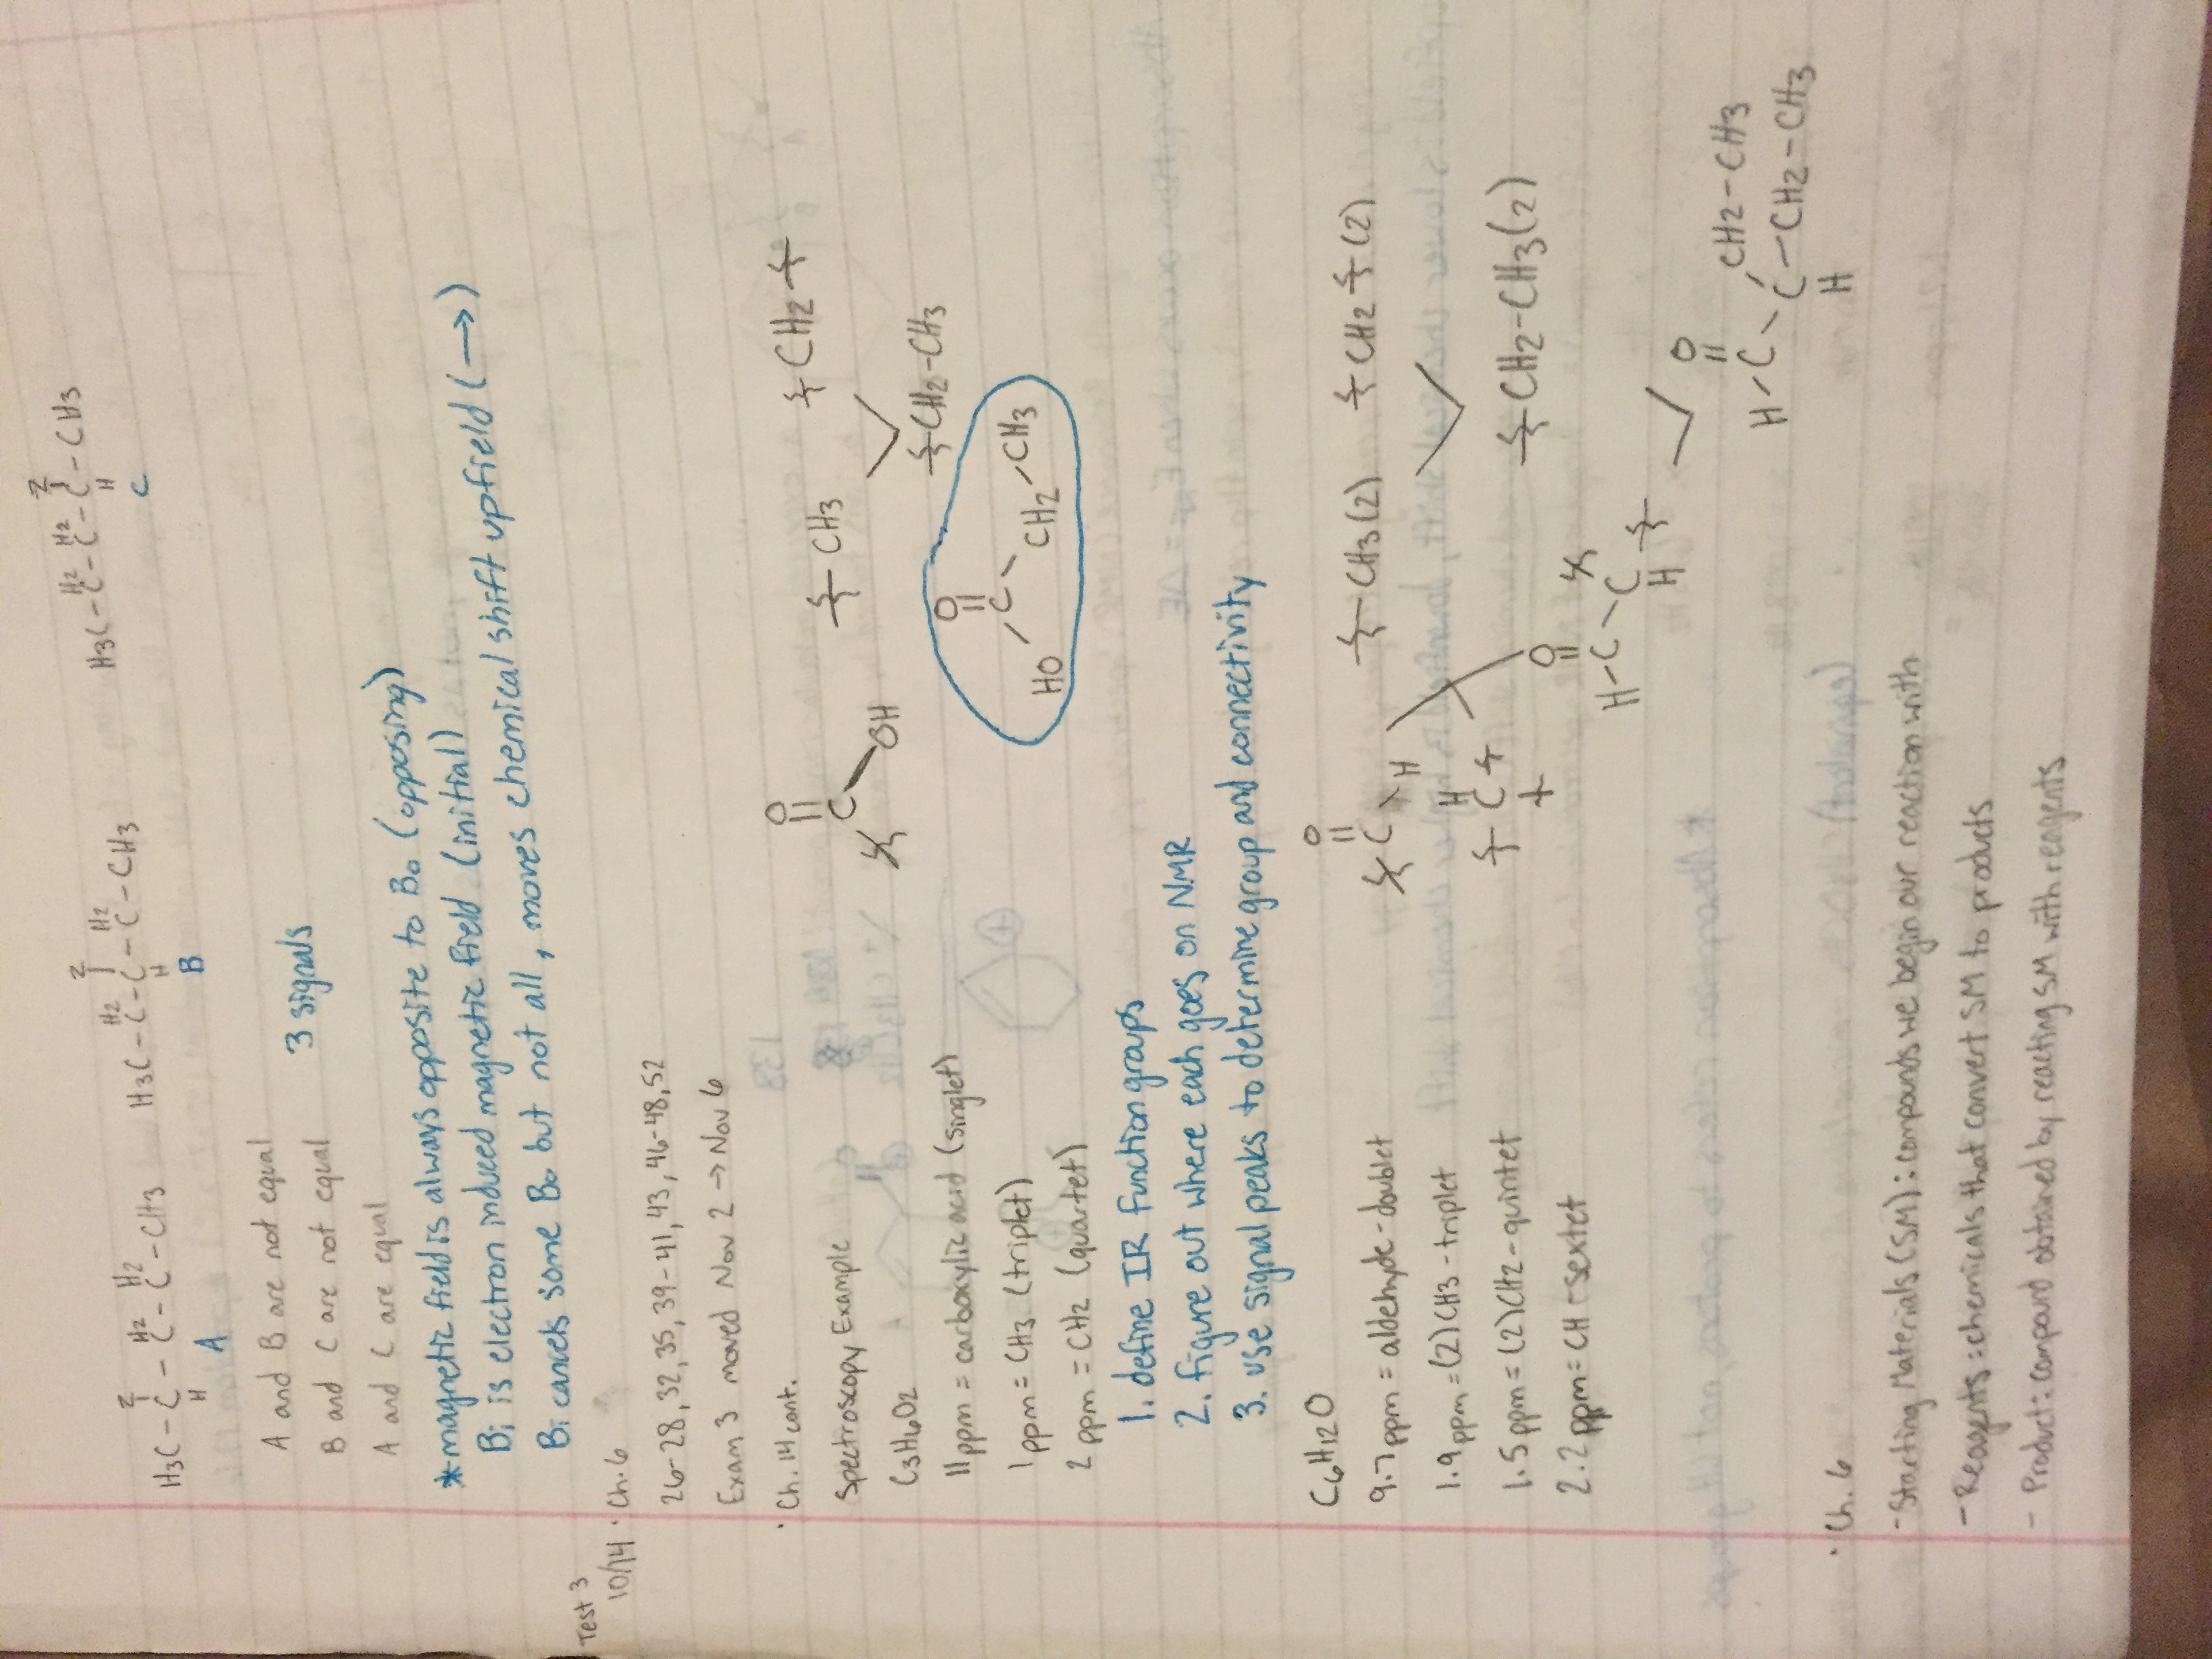 H3C-C-C-CH3
H2 H2
Z
H
A
H3C-C-C-C-CH3
H2 H2
Z
H
B
H3C-C-C-C-CH3
H2 H2
Z
H
C
A and B are not equal
B and C are not equal
A and C are equal
3 signals
*magnetic field is always opposite to B₀ (opposing)
Bi is electron induced magnetic field (initial)
Bi cancels some B₀ but not all, moves chemical shift upfield (→)
Test 3
10/14 · Ch. 6
26-28, 32, 35, 39-41, 43, 46-48, 52
Exam 3 moved Nov 2 → Nov 6
· Ch. 14 cont.
Spectroscopy Example
C3H6O2
11 ppm = carboxylic acid (singlet)
1 ppm = CH3 (triplet)
2 ppm = CH2 (quartet)
O
C
OH
CH3
CH2
CH2-CH3
O
HO C CH2 CH3
1. define IR function groups
2. figure out where each goes on NMR
3. use signal peaks to determine group and connectivity
C6H12O
9.7 ppm = aldehyde-doublet
1.9 ppm = (2)CH3-triplet
1.5 ppm = (2)CH2-quintet
2.2 ppm = CH-sextet
O
C H
CH3(2)
CH2 (2)
H
C
CH2-CH3(2)
O
H-C C
H
O
H C C CH2-CH3
CH2-CH3
H
· Ch. 6
-Starting Materials (SM): compounds we begin our reaction with
-Reagents: chemicals that convert SM to products
- Product: compound obtained by reacting SM with reagents